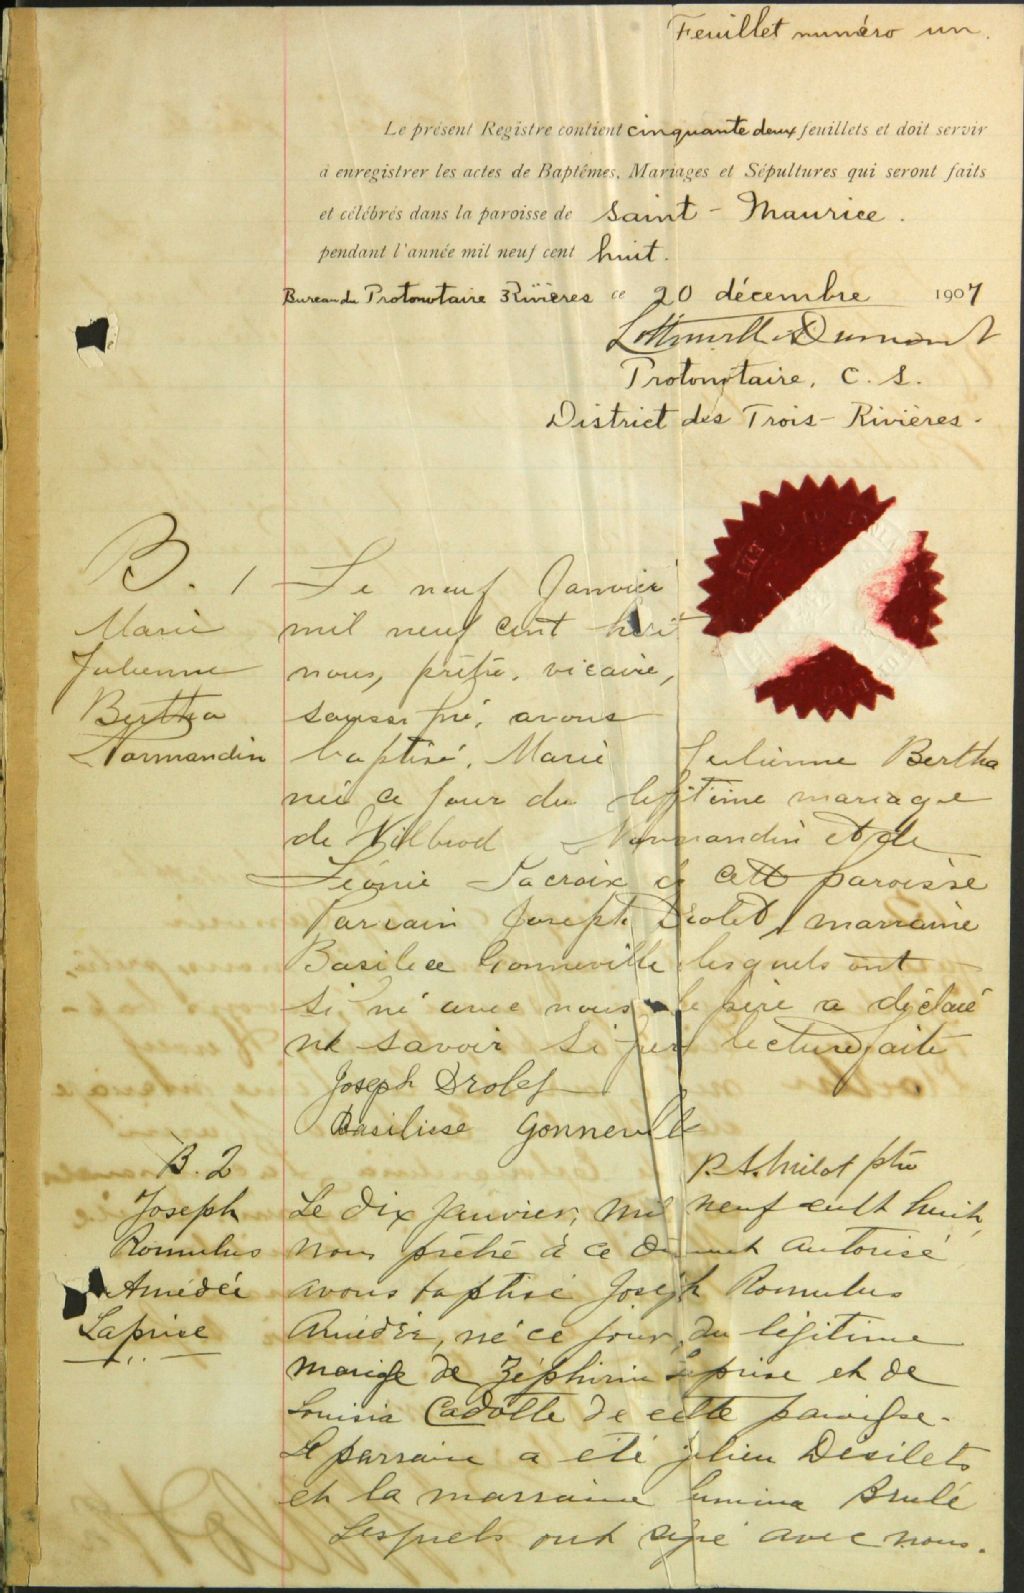 Feuillet numéro un.
Le présent Registre contient cinquante deux feuillets et doit servir
à enregistrer les actes de Baptêmes, Mariages et Sépultures qui seront faits
et célébrés dans la paroisse de Saint-Maurice.
pendant l'année mil neuf cent huit.
Bureau du Protonotaire 3 Rivières ce 20 décembre 1907
Dumont
Protonotaire, C. S.
District des Trois-Rivières.
B. 1
Marie
Julienne
Bertha
Normandin
Le neuf Janvier
mil neuf cent huit
nous, prêtre, vicaire,
soussigné, avons
baptisé, Marie Julienne Bertha
née ce jour du légitime mariage
de Wilbrod Normandin et de
Léonie Lacroix de cette paroisse
Parrain Joseph Drolet, marraine
Basilice Gonneville lesquels ont
signé avec nous le père a déclaré
ne savoir signer lecture faite
Joseph Drolet
Basiliese Gonneville
P. A. Milot ptre
B. 2
Joseph
Romulus
Amédée
Laprise
Le dix Janvier, mil neuf cent huit,
nous prêtre à ce dument autorisé
avons baptisé Joseph Romulus
Amédée, né ce jour, du légitime
mariage de Zéphirin Laprise et de
Louisia Cadotte de cette paroisse.
Le parrain a été Julien Désilets
et la marraine Brulé
Lesquels ont signé avec nous.